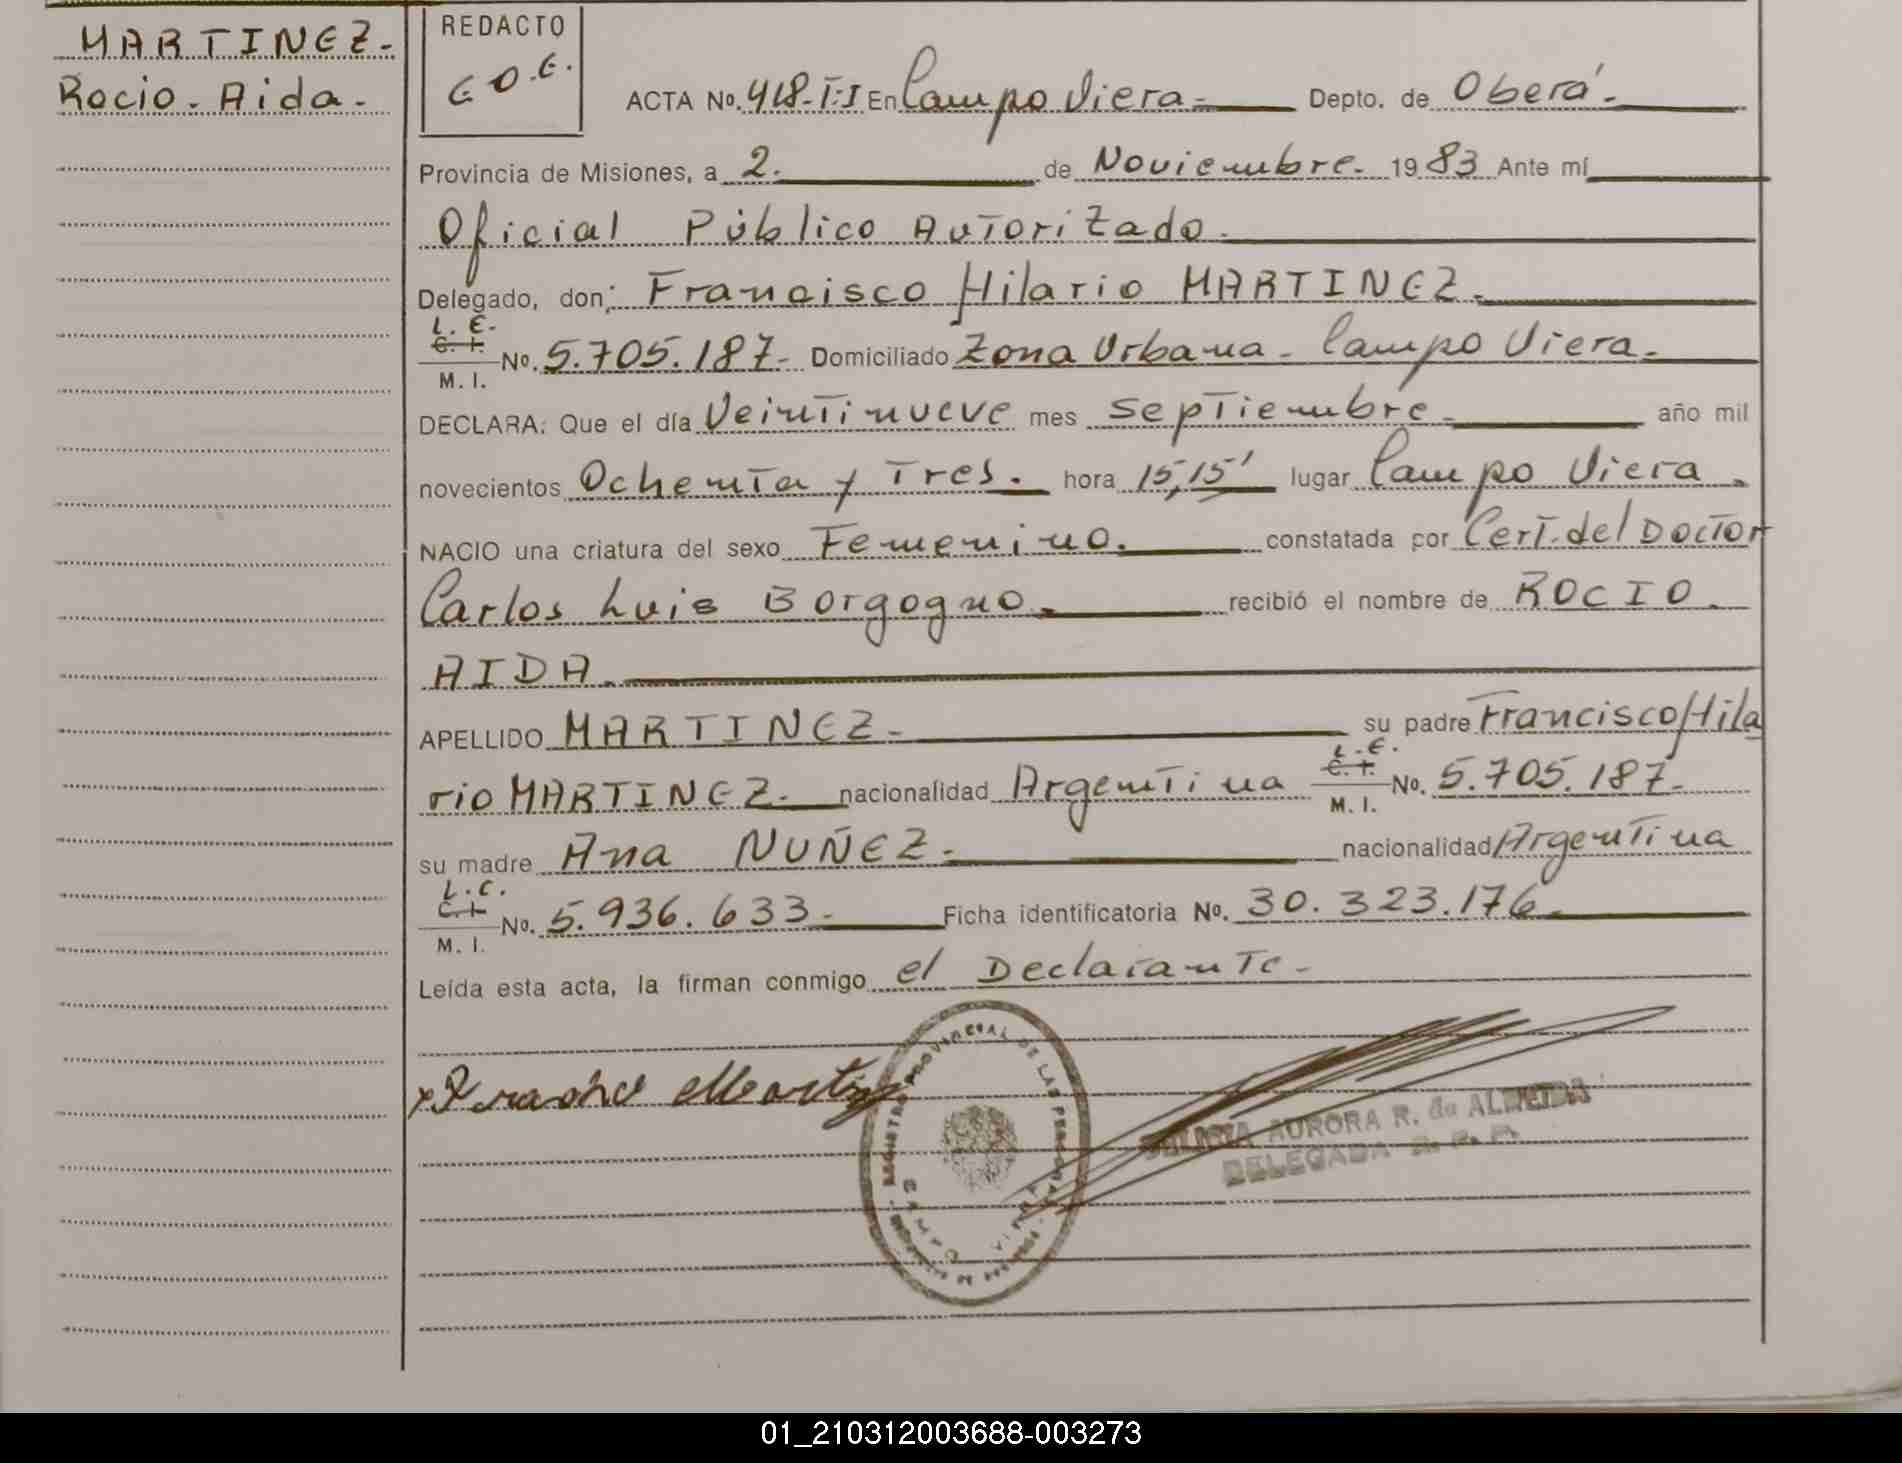 MARTINEZ.
Rocio. Aida.
REDACTO
G O.E.
ACTA No. 418-T:I En Campo Viera Depto. de Oberá
Provincia de Misiones, a 2. de Noviembre. 1983 Ante mí
Oficial Público Autorizado.
Delegado, don: Francisco Hilario MARTINEZ.
L. E.
C. I.
M. I.
No. 5.705.187. Domiciliado Zona Urbana - Campo Viera.
DECLARA: Que el día Veintinueve mes Septiembre año mil
novecientos Ochenta y Tres. hora 15,15' lugar Campo Viera.
NACIO una criatura del sexo Femenino. constatada por Cert. del Doctor
Carlos Luis Borgogno. recibió el nombre de ROCIO.
AIDA.
APELLIDO MARTINEZ. su padre Francisco Hila
rio MARTINEZ. nacionalidad Argentina L. E. C. I. M. I. No. 5.705.187.
su madre Ana NUÑEZ. nacionalidad Argentina
L. C.
C. I.
M. I.
No. 5.936.633. Ficha identificatoria No. 30.323.176.
Leída esta acta, la firman conmigo el Declarante.
REGISTRO PROVINCIAL DE LAS PERSONAS
CAMPO VIERA
AURORA R. de ALMEIDA
DELEGADA R. P. P.
01_210312003688-003273